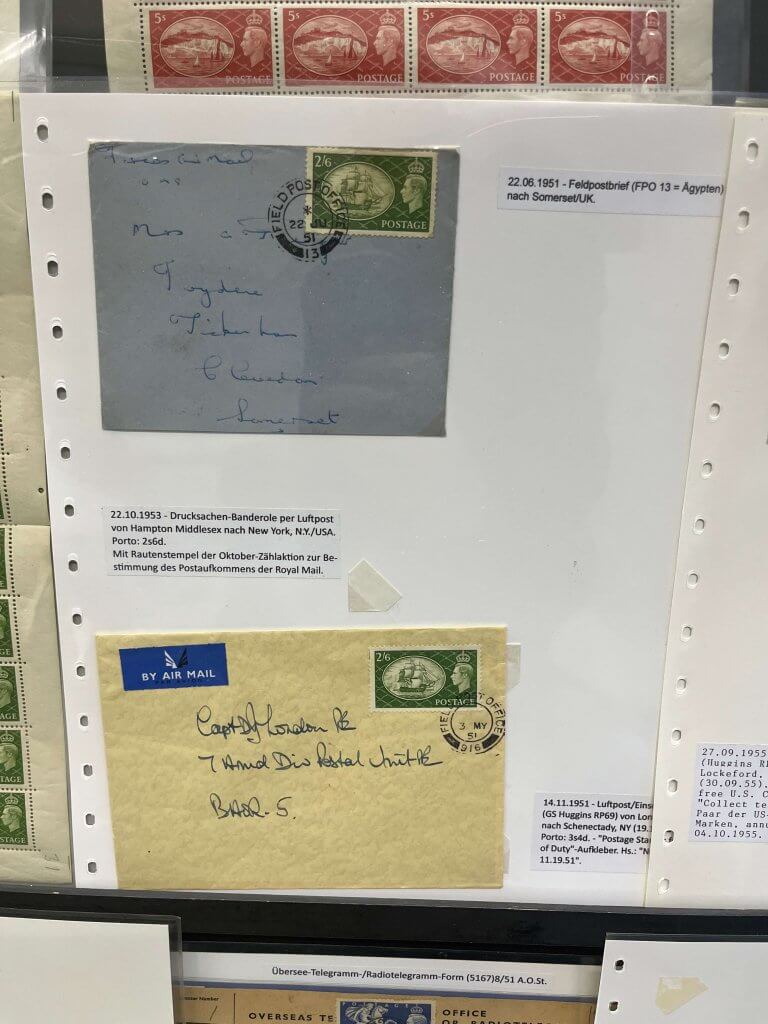 5s
POSTAGE
5s
POSTAGE
5s
POSTAGE
5s
POSTAGE
Forces Air Mail
2/6
POSTAGE
FIELD POST OFFICE
22 JU
51
13
Tickenham
Clevedon
Somerset
22.06.1951 - Feldpostbrief (FPO 13 = Ägypten)
nach Somerset/UK.
22.10.1953 - Drucksachen-Banderole per Luftpost
von Hampton Middlesex nach New York, N.Y./USA.
Porto: 2s6d.
Mit Rautenstempel der Oktober-Zählaktion zur Be-
stimmung des Postaufkommens der Royal Mail.
BY AIR MAIL
PAR AVION
2/6
POSTAGE
FIELD POST OFFICE
3 MY
51
916
Capt DJ London RE
7 Armd Div Postal Unit RE
BAOR-5.
POSTAGE
POSTAGE
POSTAGE
POSTAGE
14.11.1951 - Luftpost/Eins
(GS Huggins RP69) von Lon
nach Schenectady, NY (19.
Porto: 3s4d. - "Postage Sta
of Duty"-Aufkleber. Hs.: "N
11.19.51".
27.09.1955
(Huggins R
Lockeford.
(30.09.55).
free U.S. C
"Collect te
Paar der US-
Marken, annu
04.10.1955.
Übersee-Telegramm-/Radiotelegramm-Form (5167)8/51 A.O.St.
Number
OVERSEAS TE
POSTAGE
OFFICE
OR RADIOTELE